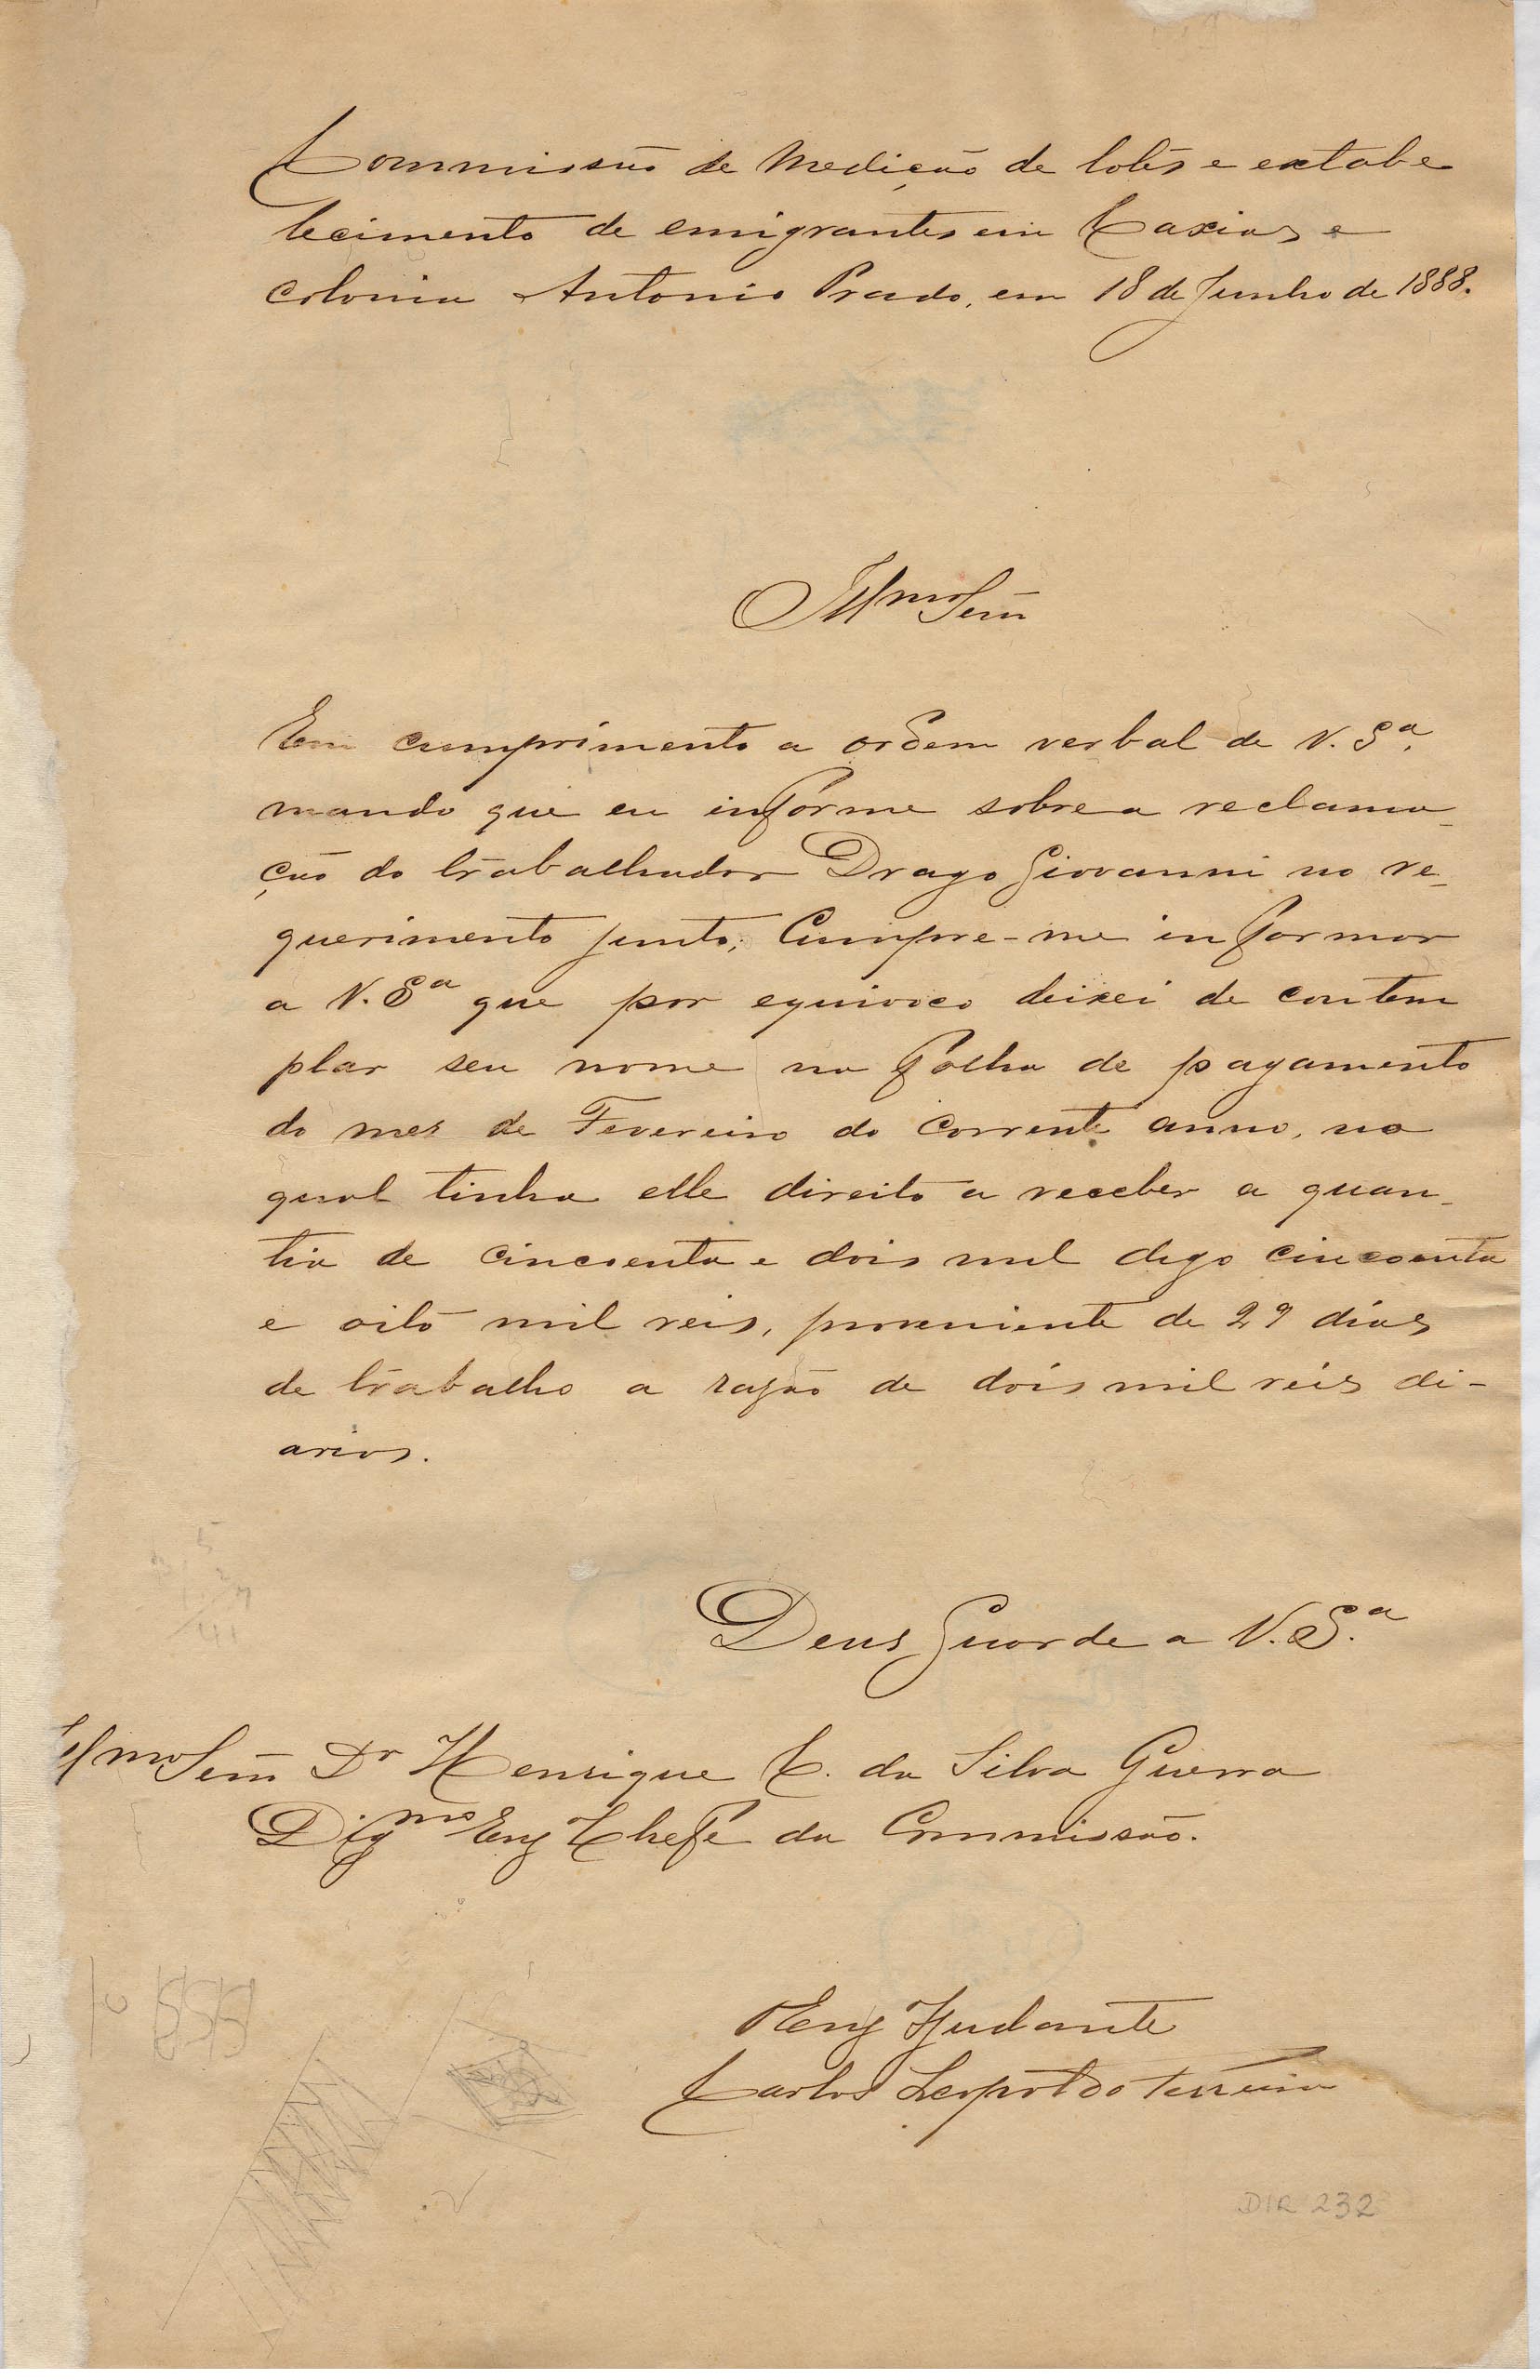 Commissão de Medição de lotes e estabe
lecimento de emigrantes em Caxias e
colonia Antonio Prado, em 18 de Junho de 1888.
Illmo Senr
Em cumprimento a ordem verbal de V. Sa.
mando que eu informe sobre a reclama-
ção do trabalhador Drago Giovanni no re-
querimento junto; Cumpre-me informar
a V. Sa que por equivoco deixei de contem
plar seu nome na folha de pagamento
do mes de Fevereiro do corrente anno, na
qual tinha elle direito a receber a quan-
tia de cincoenta e dois mil digo cincoenta
e oito mil reis, proveniente de 29 dias
de trabalho a razão de dois mil reis di-
arios.
Deus Guarde a V. S.a
Illmo Senr Dr Henrique C. da Silva Guerra
Digmo Eng Chefe da Commissão.
O Eng Ajudante
Carlos Leopoldo Terreira
DIR 232